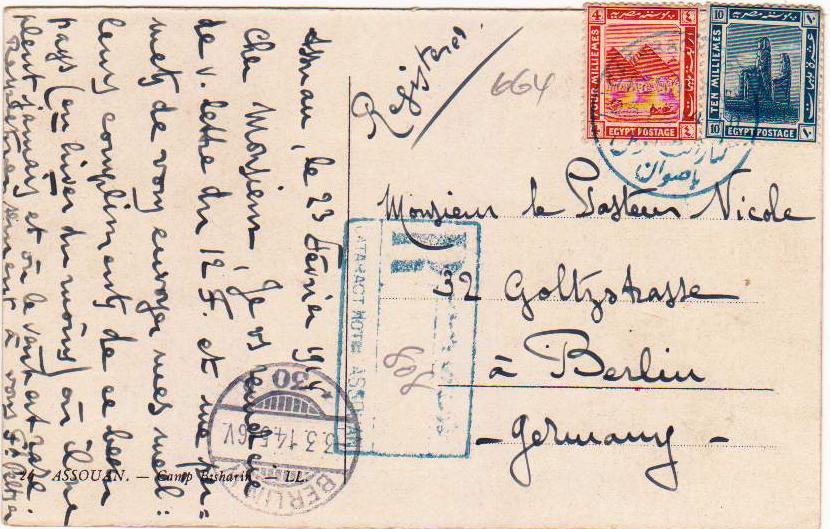 Assouan, le 23 Février 1914
Cher Monsieur, Je vs remercie
de v. lettre du 12 F. et me per-
mets de vous envoyer mes meil-
leurs compliments de ce beau
pays (en hiver du moins) où il ne
pleut jamais et où le
à vous
Registered.
664
4 4
FOUR MILLIEMES
EGYPT POSTAGE
10
TEN MILLIEMES
10 EGYPT POSTAGE
باصوان
Monsieur le Pasteur Nicole
32 Goltzstrasse
à Berlin
- Germany -
R
CATARACT HOTEL ASSOUAN
BERLIN
3.3.14.
30
24 ASSOUAN. — Camp Bisharin. — LL.